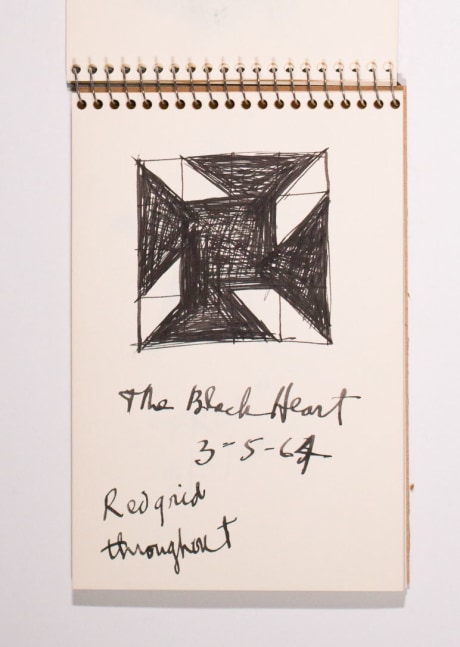 The Black Heart
3-5-64
Red grid
throughout